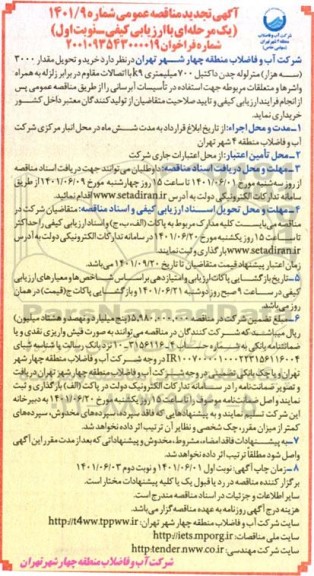 آگهی تجدید مناقصه عمومی شماره ۱۴۰۱/۹
(یک مرحله ای با ارزیابی کیفی_نوبت اول)
شماره فراخوان ۲۰۰۱۰۹۳۵۴۳۰۰۰۰۱۹
شرکت آب و فاضلاب منطقه چهار شهر تهران در نظر دارد خرید و تحویل مقدار ۳۰۰۰
(سه هزار) متر لوله چدن داکتیل ۷۰۰ میلیمتری k۹ با اتصالات مقاوم در برابر زلزله به همراه
واشر ها و متعلقات مربوطه جهت استفاده در تأسیسات آبرسانی را از طریق مناقصه عمومی پس
از انجام فرایند ارزیابی کیفی و تایید صلاحیت متقاضیان از تولید کنندگان معتبر داخل کشور
خریداری نماید.
۱_مدت و محل اجراء: از تاریخ ابلاغ قرارداد به مدت شش ماه در محل انبار مرکزی شرکت
آب و فاضلاب منطقه ۴ شهر تهران
۲_محل تأمین اعتبار: از محل اعتبارات جاری شرکت
۳_مهلت و محل دریافت اسناد مناقصه: داوطلبان می توانند جهت دریافت اسناد مناقصه
از روز سه شنبه مورخ ۱۴۰۱/۰۶/۰۱ تا ساعت ۱۵ روز چهارشنبه مورخ ۱۴۰۱/۰۶/۰۹ از طریق
سامانه تدارکات الکترونیکی دولت به آدرس www.setadiran.ir اقدام نمایند.
۴_مهلت و محل تحویل اسناد ارزیابی کیفی و اسناد مناقصه: متقاضیان شرکت در
مناقصه می بایست کلیه مدارک مربوط به پاکات (الف، ب، ج) و اسناد ارزیابی کیفی را حداکثر
تا ساعت ۱۵ روز یکشنبه مورخ ۱۴۰۱/۰۶/۲۰ در سامانه تدارکات الکترونیکی دولت به آدرس
www.setadiran.ir بارگذاری و ثبت نمایند.
زمان اعتبار پیشنهاد قیمت متقاضیان تا تاریخ ۱۴۰۱/۰۹/۲۰ می باشد
۵_تاریخ بازگشایی پاکات ارزیابی و امتیازدهی بر اساس شاخص ها و معیارهای ارزیابی
کیفی در ساعت ۹ صبح روز دوشنبه ۱۴۰۱/۰۶/۲۱ و بازگشایی پاکات ج (قیمت) در همان
روز می باشد.
۶_مبلغ تضمین شرکت در مناقصه ۵.۹۸۰.۰۰۰.۰۰۰ (پنج میلیارد و نهصد و هشتاد میلیون)
ریال میباشد که شرکت کنندگان در مناقصه می توانند به صورت فیش واریزی نقدی و یا
ضمانتنامه بانکی به شماره حساب ۴_۳۱۵۶۱۱۶_۱۰ نزد بانک رسالت یا شناسه شبای
IR۱۱۰۷۰۰۰۰۱۰۰۰۲۲۳۱۵۶۱۱۶۰۰۴ در وجه شرکت آب و فاضلاب منطقه چهار شهر
تهران و یا چک بانکی تضمینی در وجه شرکت آب و فاضلاب منطقه چهار شهر تهران دریافت
و تصویر ضمانتنامه را در سامانه تدارکات الکترونیک دولت در پاکت (الف) بارگذاری و ثبت
نمایند و اصل ضمانتنامه موصوف را تا ساعت ۱۵ روز یکشنبه مورخ ۱۴۰۱/۰۶/۲۰ به دبیرخانه
این شرکت تسلیم نمایند و به پیشنهادهایی که فاقد سپرده، سپرده های مخدوش، سپرده های
کمتر از میزان مقرر، چک شخصی و نظایر آن ترتیب اثر داده نخواهد شد.
۷_به پیشنهادات فاقد امضاء، مشروط، مخدوش و پیشنهاداتی که بعد از مدت مقرر این آگهی
واصل شود مطلقا ترتیب اثر داده نخواهد شد.
۸_زمان چاپ آگهی: نوبت اول ۱۴۰۱/۰۶/۰۱ و نوبت دوم ۱۴۰۱/۰۶/۰۳
برگزار کننده مناقصه در رد یا قبول یک یا کلیه پیشنهادات مختار است.
سایر اطلاعات و جزئیات در اسناد مناقصه مندرج است.
هزینه درج آگهی روزنامه به عهده مناقصه گزار می باشد.
سایت شرکت آب و فاضلاب منطقه چهار شهر تهران: http://t4ww.tppww.ir
سایت ملی مناقصات: http://iets.mporg.ir
سایت شرکت مهندسی: http:tender.nww.co.ir
شرکت آب و فاضلاب منطقه چهار شهر تهران